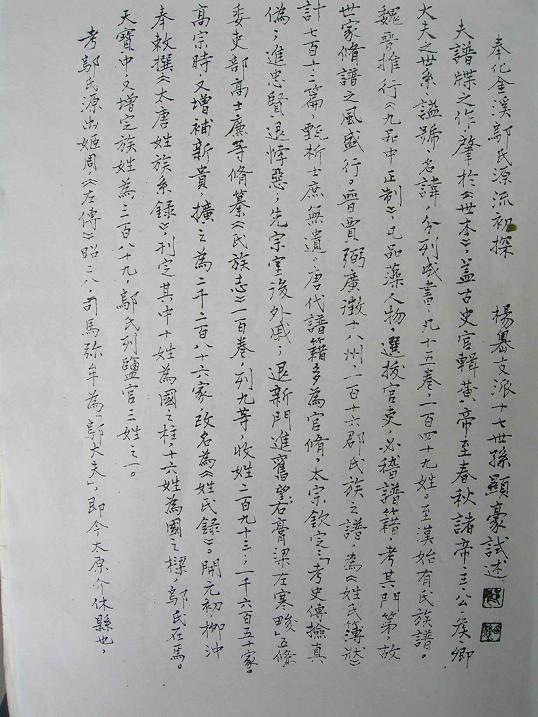 奉化金溪鄔氏源流初探　楊嶴文派十七世孫顯豪試述
夫譜牒之作肇於《世本》，蓋古史官輯黃帝至春秋諸帝王公侯卿
大夫之世系、謚號、名諱，分列成書，凡十五卷，一百四十九姓。至漢始有氏族譜。
魏晉推行《九品中正制》，凡品藻人物，選拔官吏，必稽譜籍，考其門第，故
世家脩譜之風盛行。晉賈弼廣徵十八州，一百十六郡氏族之譜，為《姓氏簿狀》
計七百十二篇，甄析士庶無遺。唐代譜籍多為官脩，太宗欽定：「考史傳撿真
偽；進忠賢，退悖惡；先宗室後外戚；退新門進舊望；右膏梁左寒畯」五條
委吏部高士廉等脩纂《氏族志》一百卷，列九等，收姓二百九十三，一千六百五十家。
高宗時又增補新貴，擴之為二千二百八十六家改名為《姓氏錄》。開元初柳沖
奉敕撰《太唐姓族系錄》，刊定其中十姓為國之柱，十六姓為國之樑，鄔氏在焉。
天寶中，又增定族姓為三百八十九，鄔氏列鹽官三姓之一。
考鄔氏源出姬周，《左傳》昭二八，司馬弥牟為「鄔大夫」，即今太原介休縣也，